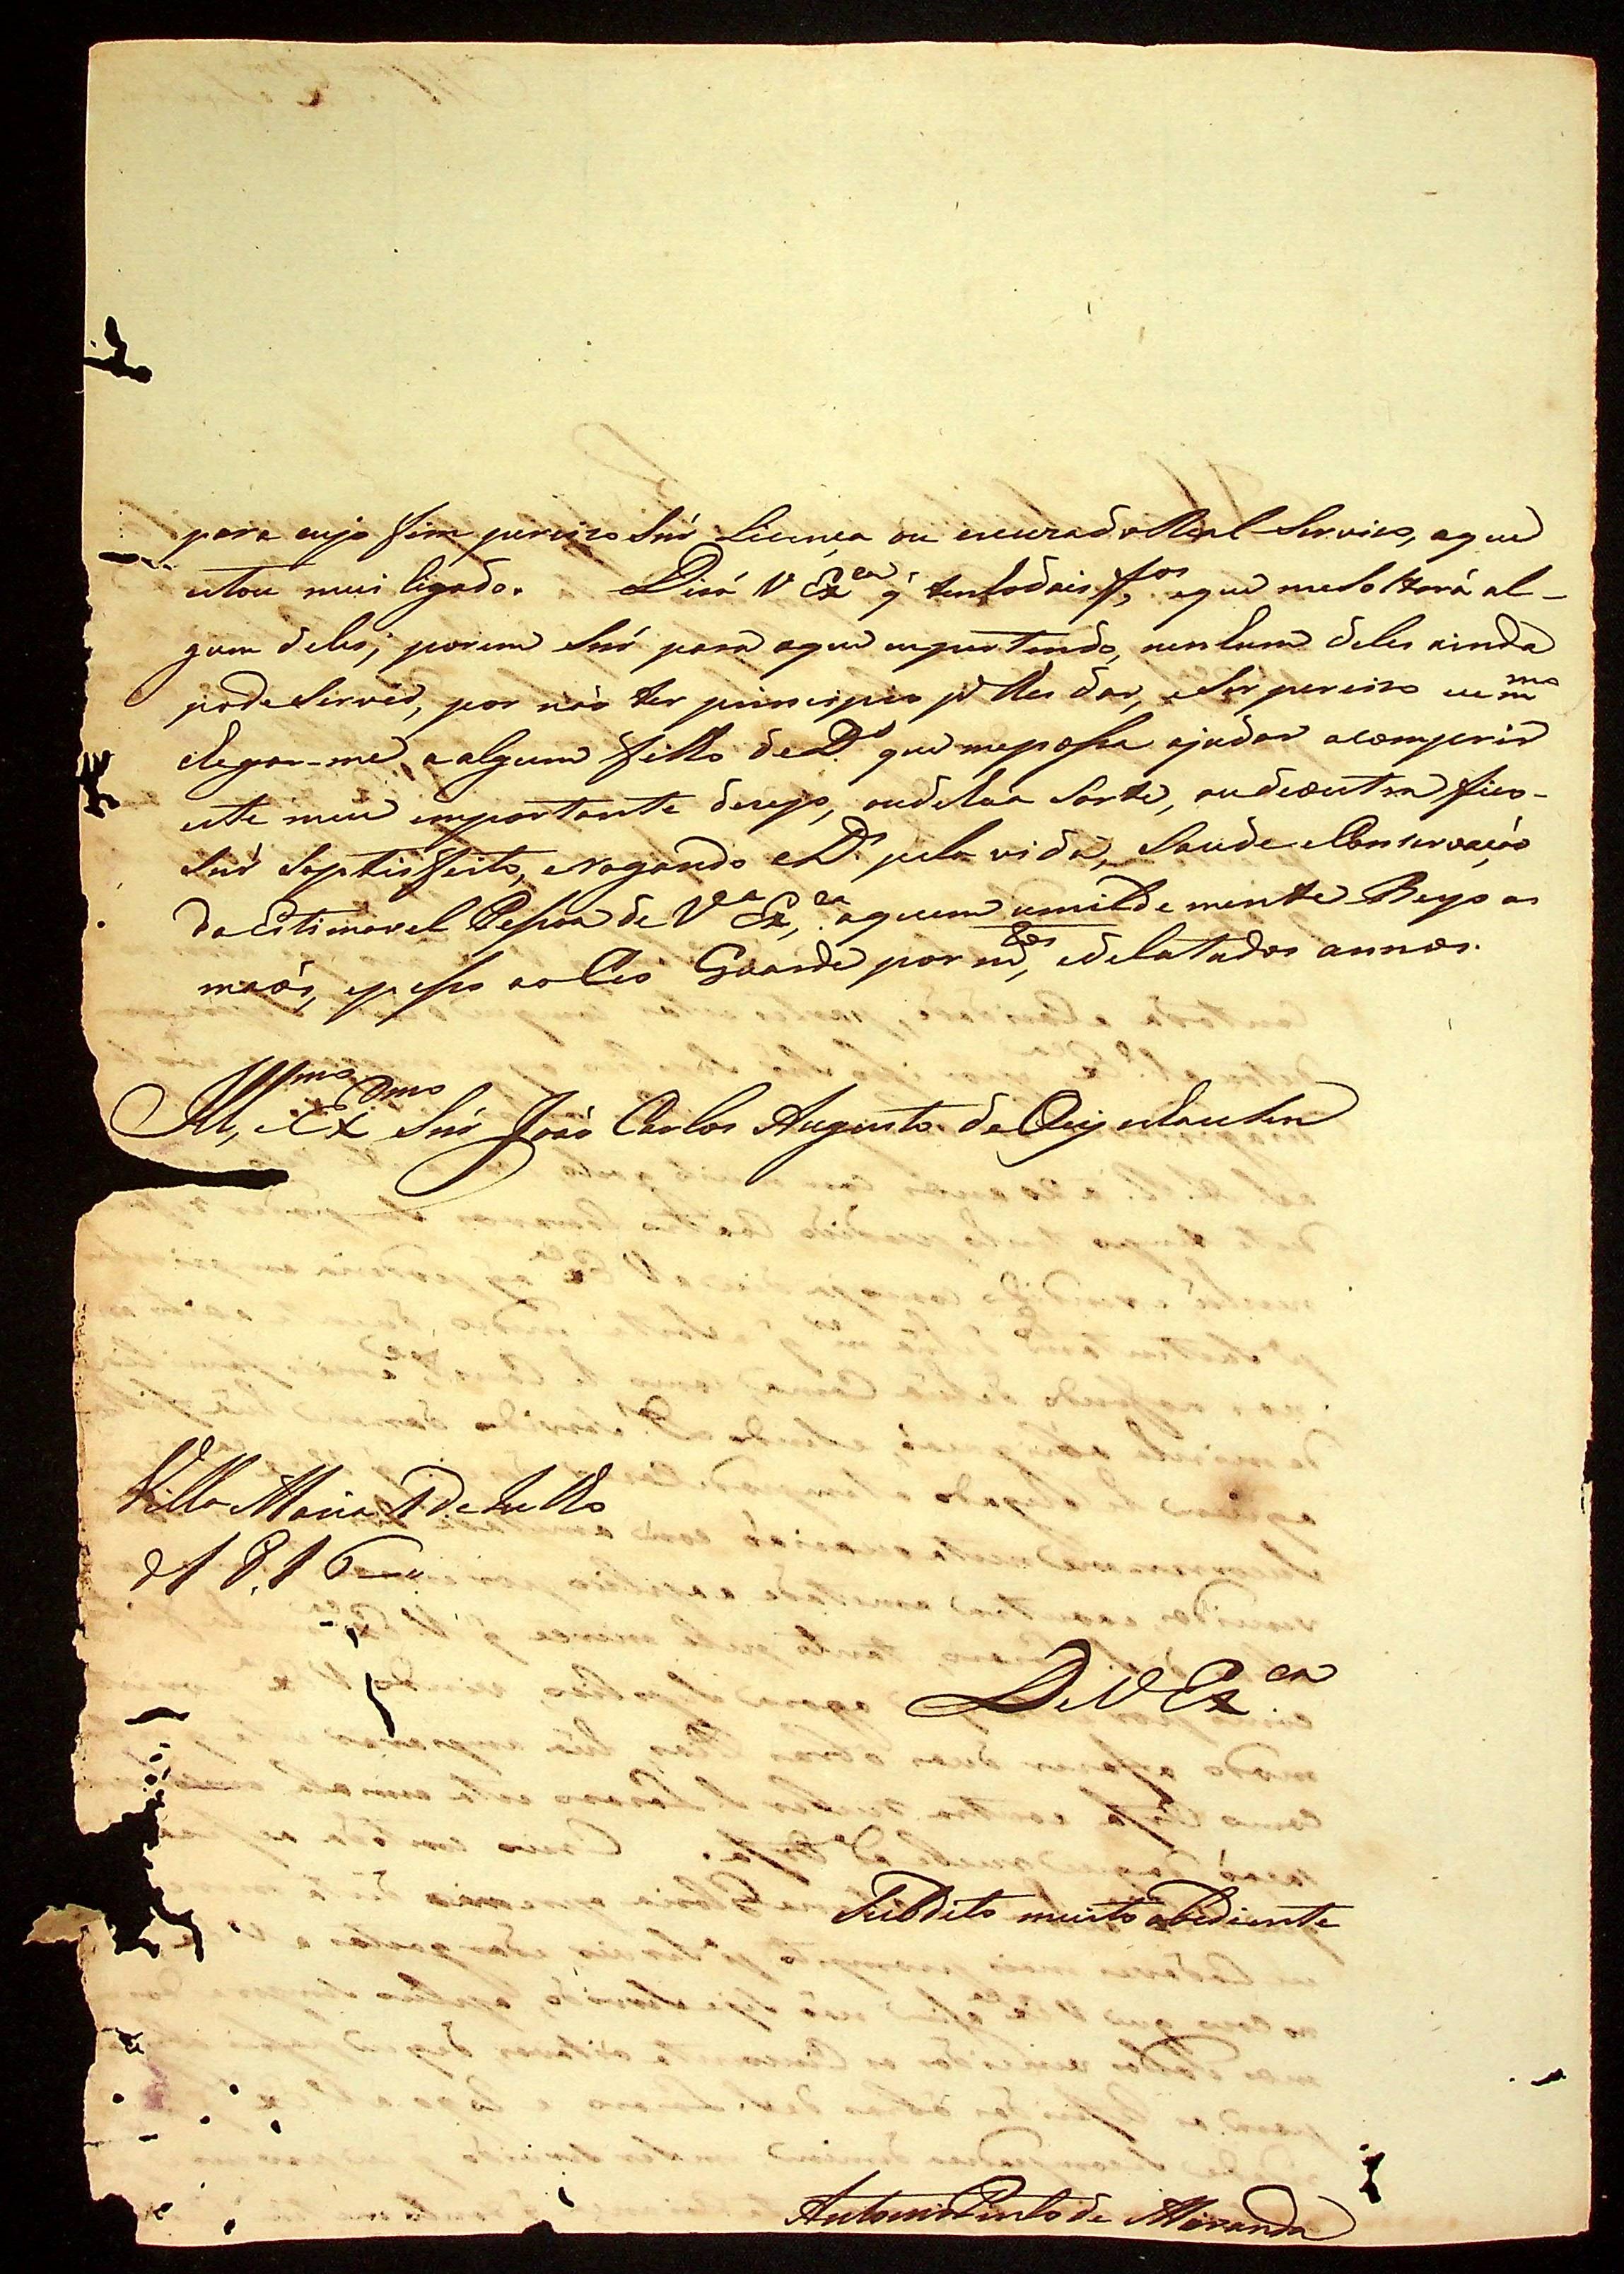 para cujo fim perciso Snr Licença ou escuza do Real Serviço, aque
estou mui ligado. Dirá V Exca q̃ tenho dois fos, eque me soltará al-
gum deles; porem Snr para aque eu pertendo, nenhum deles ainda
pode Servir, por não ter principio pa lhes dar, e Ser perciso eu mmo
chegar-me a algum filho de Ds que me possa ajudar acomprir
este meu emportante desejo, ou desta Sorte, ou de outra fico
Snr Saptisfeito, e rogando a Ds pela vida, Saude e Conservação
da Estimavel Pessoa de Va Exca, aquem umildemente Bejo as
mãos, epesso ao Ceo Guarde por ms, edelatados annos.
Illmo, e Exmo Snr João Carlos Augusto de Oeynhausen
Villa Maria 1 de Julho
d 1816
De V Exca
Subdito muito obediente
Antonio Pinto de Miranda